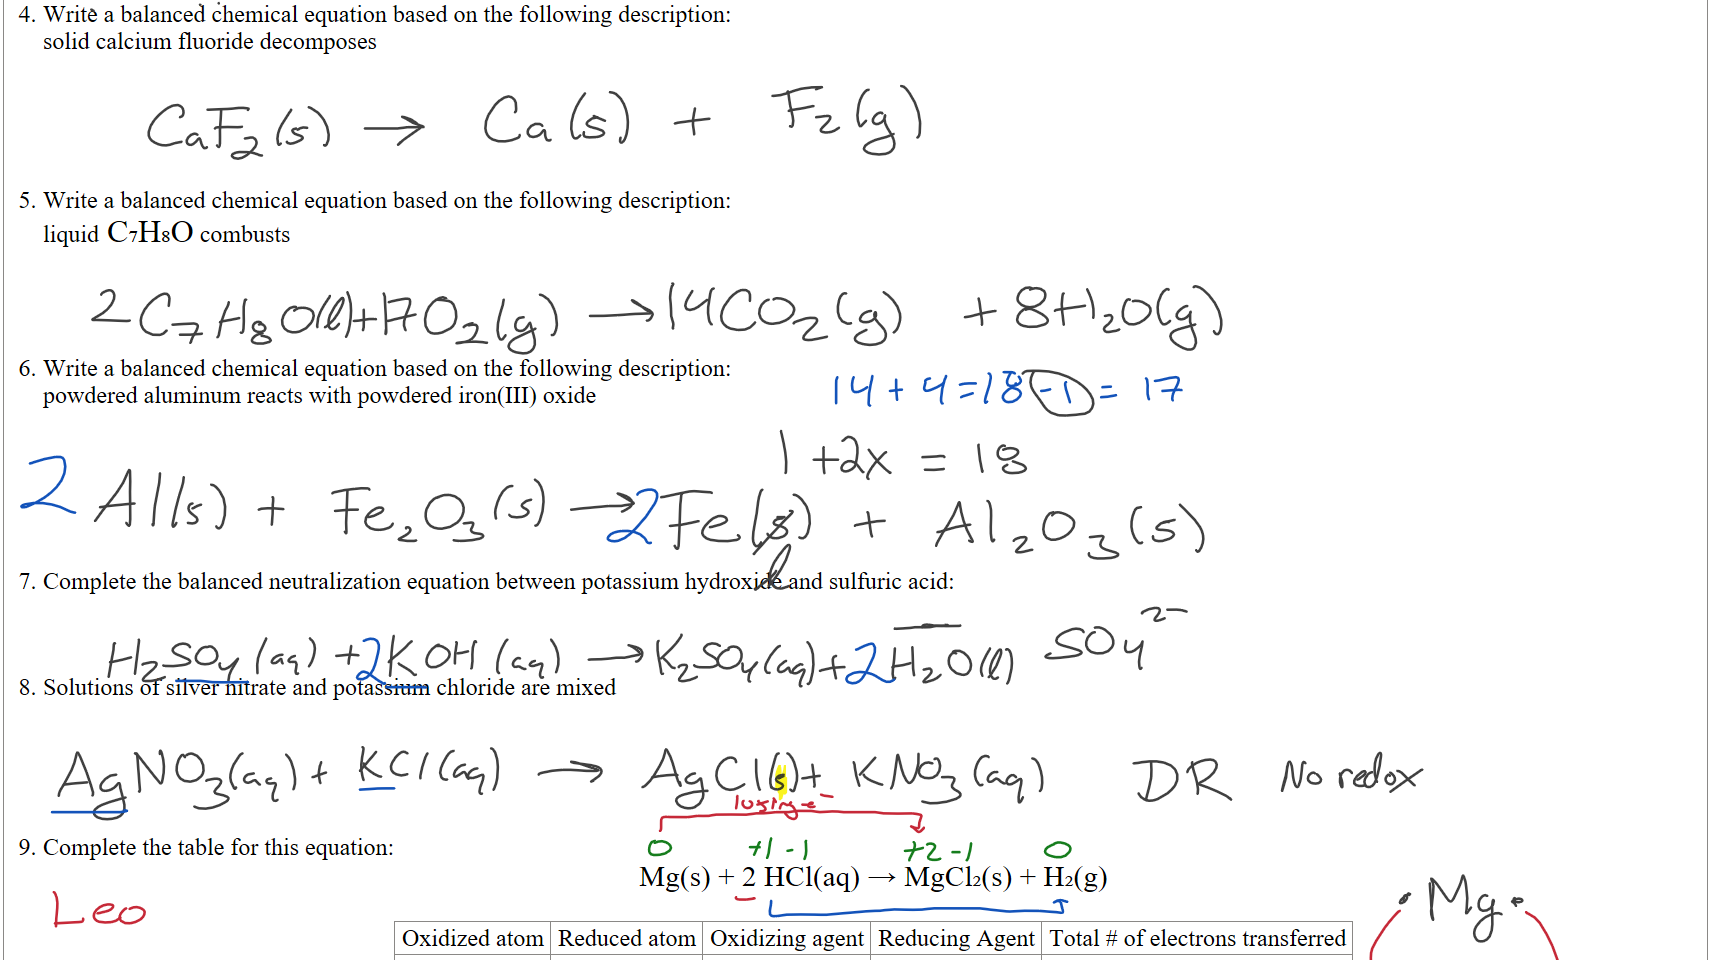 4. Write a balanced chemical equation based on the following description:
solid calcium fluoride decomposes
CaF₂(s) → Ca(s) + F₂(g)
5. Write a balanced chemical equation based on the following description:
liquid C₇H₈O combusts
2C₇H₈O(l)+17O₂(g) → 14CO₂(g) + 8H₂O(g)
6. Write a balanced chemical equation based on the following description:
powdered aluminum reacts with powdered iron(III) oxide
14 + 4 = 18 - 1 = 17
1 + 2x = 18
2 Al(s) + Fe₂O₃(s) → 2Fe(l) + Al₂O₃(s)
7. Complete the balanced neutralization equation between potassium hydroxide and sulfuric acid:
H₂SO₄(aq) + 2KOH(aq) → K₂SO₄(aq) + 2H₂O(l) SO₄²⁻
8. Solutions of silver nitrate and potassium chloride are mixed
AgNO₃(aq) + KCl(aq) → AgCl(s) + KNO₃(aq) DR No redox
losing e⁻
9. Complete the table for this equation:
0 +1 -1 +2 -1 0
Mg(s) + 2 HCl(aq) → MgCl₂(s) + H₂(g)
Leo
Mg
Oxidized atom Reduced atom Oxidizing agent Reducing Agent Total # of electrons transferred